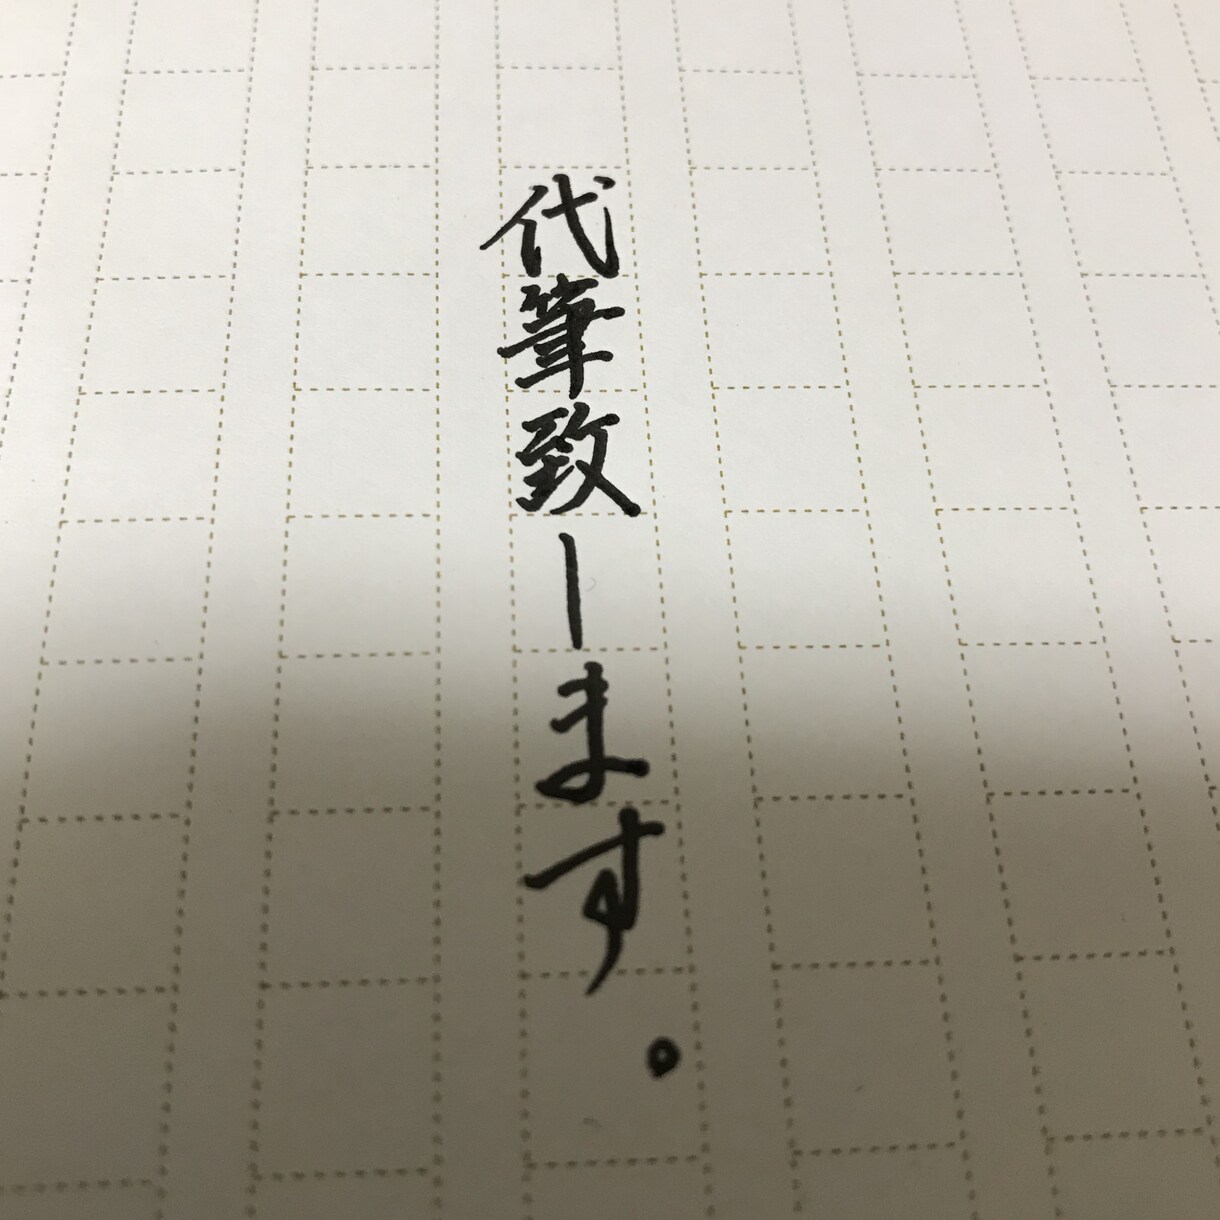 代筆致します。